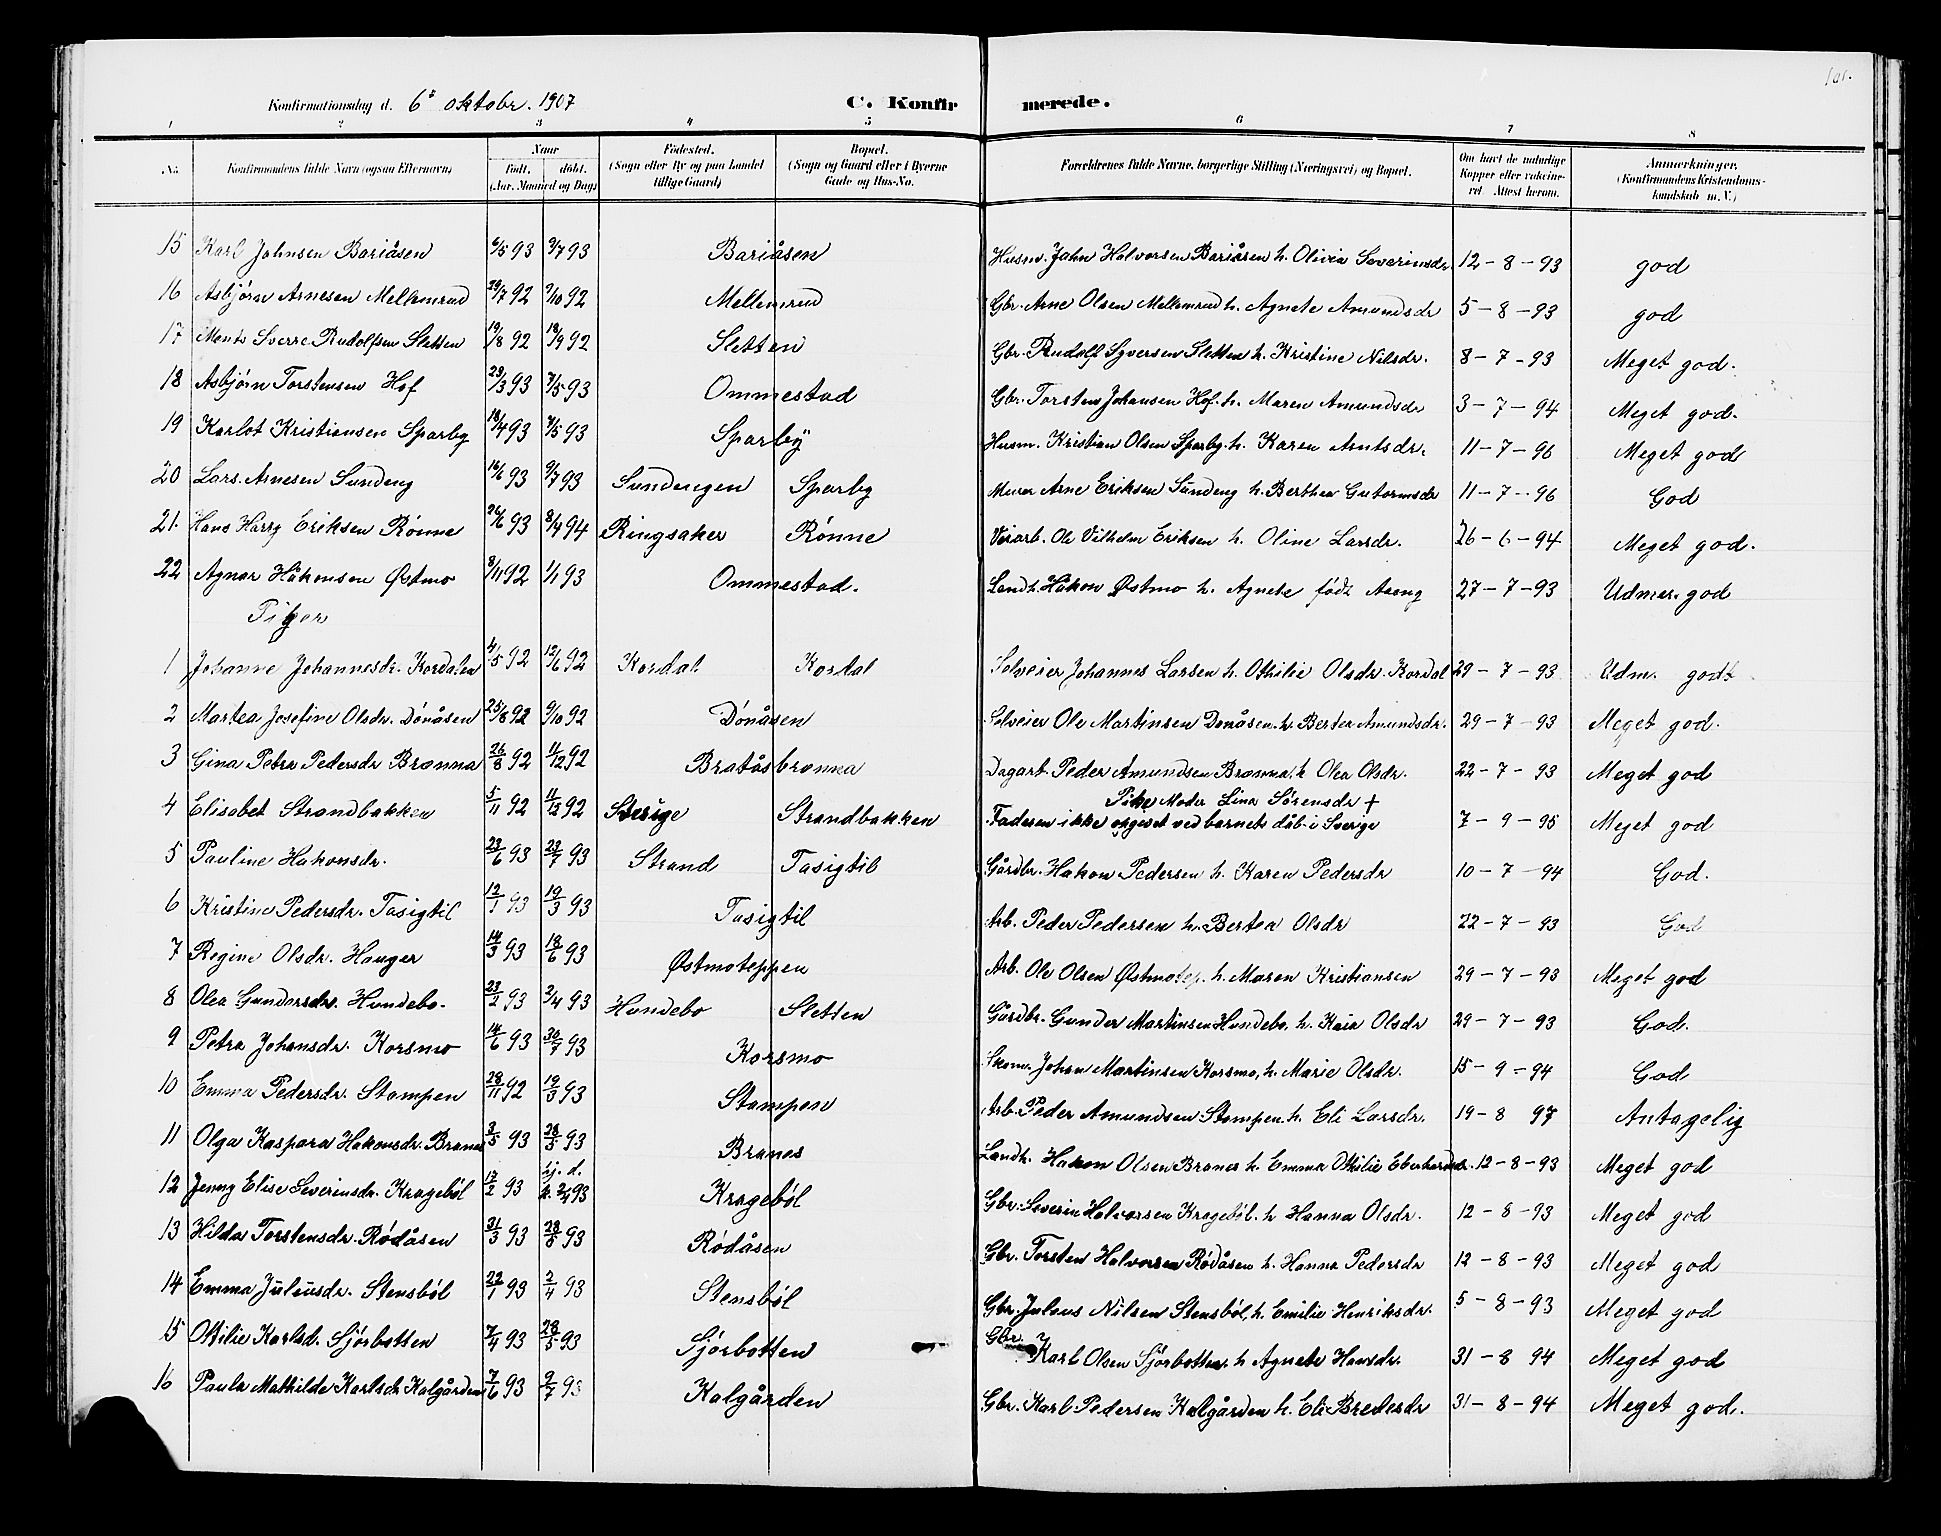 101.
Konfirmationsdag d. 6t oktober. 1907 C. Konfir merede.
1 2 3 4 5 6 7 8
No. Konfirmandens fulde Navn (ogsaa Efternavn) Naar født. døbt. (Aar, Maaned og Dag) Födested. (Sogn eller By og paa Landet tillige Gaard) Bopæl. (Sogn og Gaard eller i Byerne Gade og Hus-No. Forældrenes fulde Navne, borgerlige Stilling (Næringsvei) og Bopæl. Om havt de naturlige Kopper eller vakcineret Attest herom. Anmærkninger, (Konfirmandens Kristendomskundskab m. V.)
15 Karl Johnsen Bariåsen 6/5 93 9/7 93 Bariåsen Husm. John Halvorsen Bariåsen h. Olivia Severinsdr 12-8-93 god
16 Asbjørn Arnesen Mellemrud 29/7 92 9/10 92 Mellemrud Gbr. Arne Olsen Mellemrud h. Agnete Amundsdr 5-8-93 god
17 Sverre Rudolfsen Sletten 19/8 92 18/9 92 Sletten Gbr. Rudolf Syversen Sletten h. Kristine Nilsdr. 8-7-93 Meget god.
18 Asbjørn Torstensen Hof 28/3 93 7/5 93 Ommestad Gbr. Torsten Johansen Hof. h. Maren Amundsdr 3-7-94 Meget god.
19 Karlot Kristiansen Sparby 18/4 93 7/5 93 Sparby Husm. Kristian Olsen Sparby. h. Karen Arntsdr. 11-7-96 Meget god
20 Lars Arnesen Sundeng 16/6 93 9/7 93 Sundengen Sparby Murer Arne Eriksen Sundeng h. Berthea Gutormsdr 11-7-96 God
21. Hans Harry Eriksen Rönne 26/6 93 8/4 94 Ringsaker Rönne Ole Vilhelm Eriksen h. Oline Larsdr. 26-6-94 Meget god.
22 Agnar Håkonsen Østmo 3/11 92 1/1 93 Ommestad. Landh. Håkon Østmo h. Agnete født Aseng 27-7-93 Udmer. god
Piger
1 Johanne Johannesdr. Kordalen 4/5 92 12/6 92 Kordal Kordal Selveier Johannes Larsen h. Othilie Olsdr. Kordal 29-7-93 Udm. godt
2 Martea Josefine Olsdr. Dönåsen 25/8 92 9/10 92 Dönåsen Selveier Ole Martinsen Dönåsen. h. Bertea Amundsdr. 29-7-93 Meget god.
3 Gina Petra Pedersdr Brønna 26/8 92 11/12 92 Bratåsbrønna Dagarb. Peder Amundsen Brønna. h Olea Olsdr. 22-7-93 Meget god
4 Elisabet Strandbakken 5/11 92 11/12 92 Sverige Strandbakken Pike Moder Lina Sörensdr +
Faderen ikke opgivet ved barnets dåb i Sverige 7-9-95 Meget god
5 Pauline Hakonsdr. 23/6 93 23/7 93 Strand Tasigtil Gårdbr. Hakon Pedersen h. Karen Pedersdr 10-7-94 God.
6 Kristine Pedersdr. Tasigtil 12/1 93 19/3 93 Tasigtil Arb. Peder Pedersen h. Bertea Olsdr 22-7-93 God
7 Regine Olsdr. Hauger 14/3 93 18/6 93 Østmoteppen Arb. Ole Olsen Østmotep. h. Maren Kristiansen 29-7-93 Meget god
8 Olea Gundersdr. Hundebo. 23/2 93 2/4 93 Hundebo Sletten Gårdbr. Gunder Martinsen Hundebo. h. Kaia Olsdr 29-7-93 God.
9 Petra Johansdr. Korsmo 14/6 93 30/7 93 Korsmo Skom. Johan Martinsen Korsmo, h. Marie Olsdr. 15-9-94 God
10 Emma Pedersdr. Stampen 28/11 92 19/3 93 Stampen Arb. Peder Amundsen Stampen. h. Eli Larsdr. 19-8 97 Antagelig
11 Olga Kaspara Hakonsdr. Branes 3/5 93 28/5 93 Branes Landh. Hakon Olsen Branes h. Emma Othilie Eberhardsdr. 12-8-93 Meget god
12 Jenny Elise Severinsdr. Krageböl 17/2 93 hj. d. k. 2/4 93 Krageböl Gbr. Severin Halvorsen Krageböl. h Hanna Olsdr. 12-8-93 Meget god
13 Hilda Torstensdr. Rödåsen 31/3 93 28/5 93 Rödåsen Gbr. Torsten Halvorsen Rödåsen h. Hanna Pedersdr 12-8-93 Meget god
14 Emma Juliusdr. Stensböl 22/1 93 2/4 93 Stensböl Gbr. Julius Nilsen Stensböl, h. Emilie Henriksdr. 5-8-93 Meget god
15 Otilie Karlsd. Sjörbotten 7/4 93 28/5 93 Sjörbotten Gbr. Karl Olsen Sjörbotten. h Agnete Hansdr. 31-8 94 Meget god
16 Paula Mathilde Karlsdr Kalgården 7/6 93 9/7 93 Kalgården Gbr. Karl Pedersen Kalgården h. Eli Bredesdr 31-8-94 Meget god.